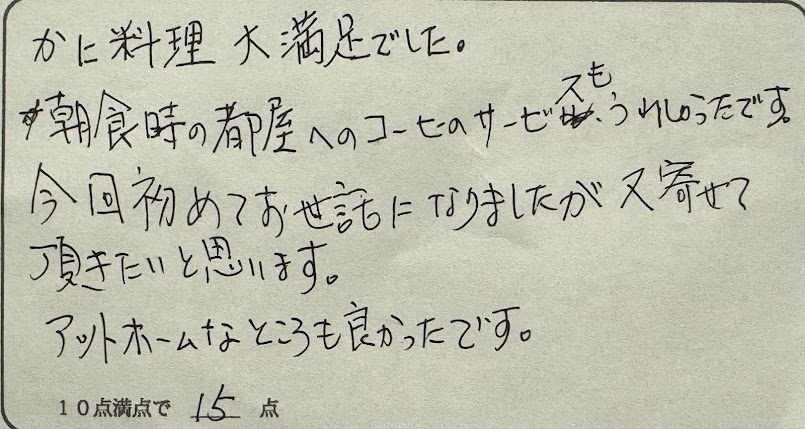 かに料理 大満足でした。
朝食時の部屋へのコーヒーのサービスも、うれしかったです。
今回初めてお世話になりましたが又寄せて
頂きたいと思います。
アットホームなところも良かったです。
10点満点で 15 点